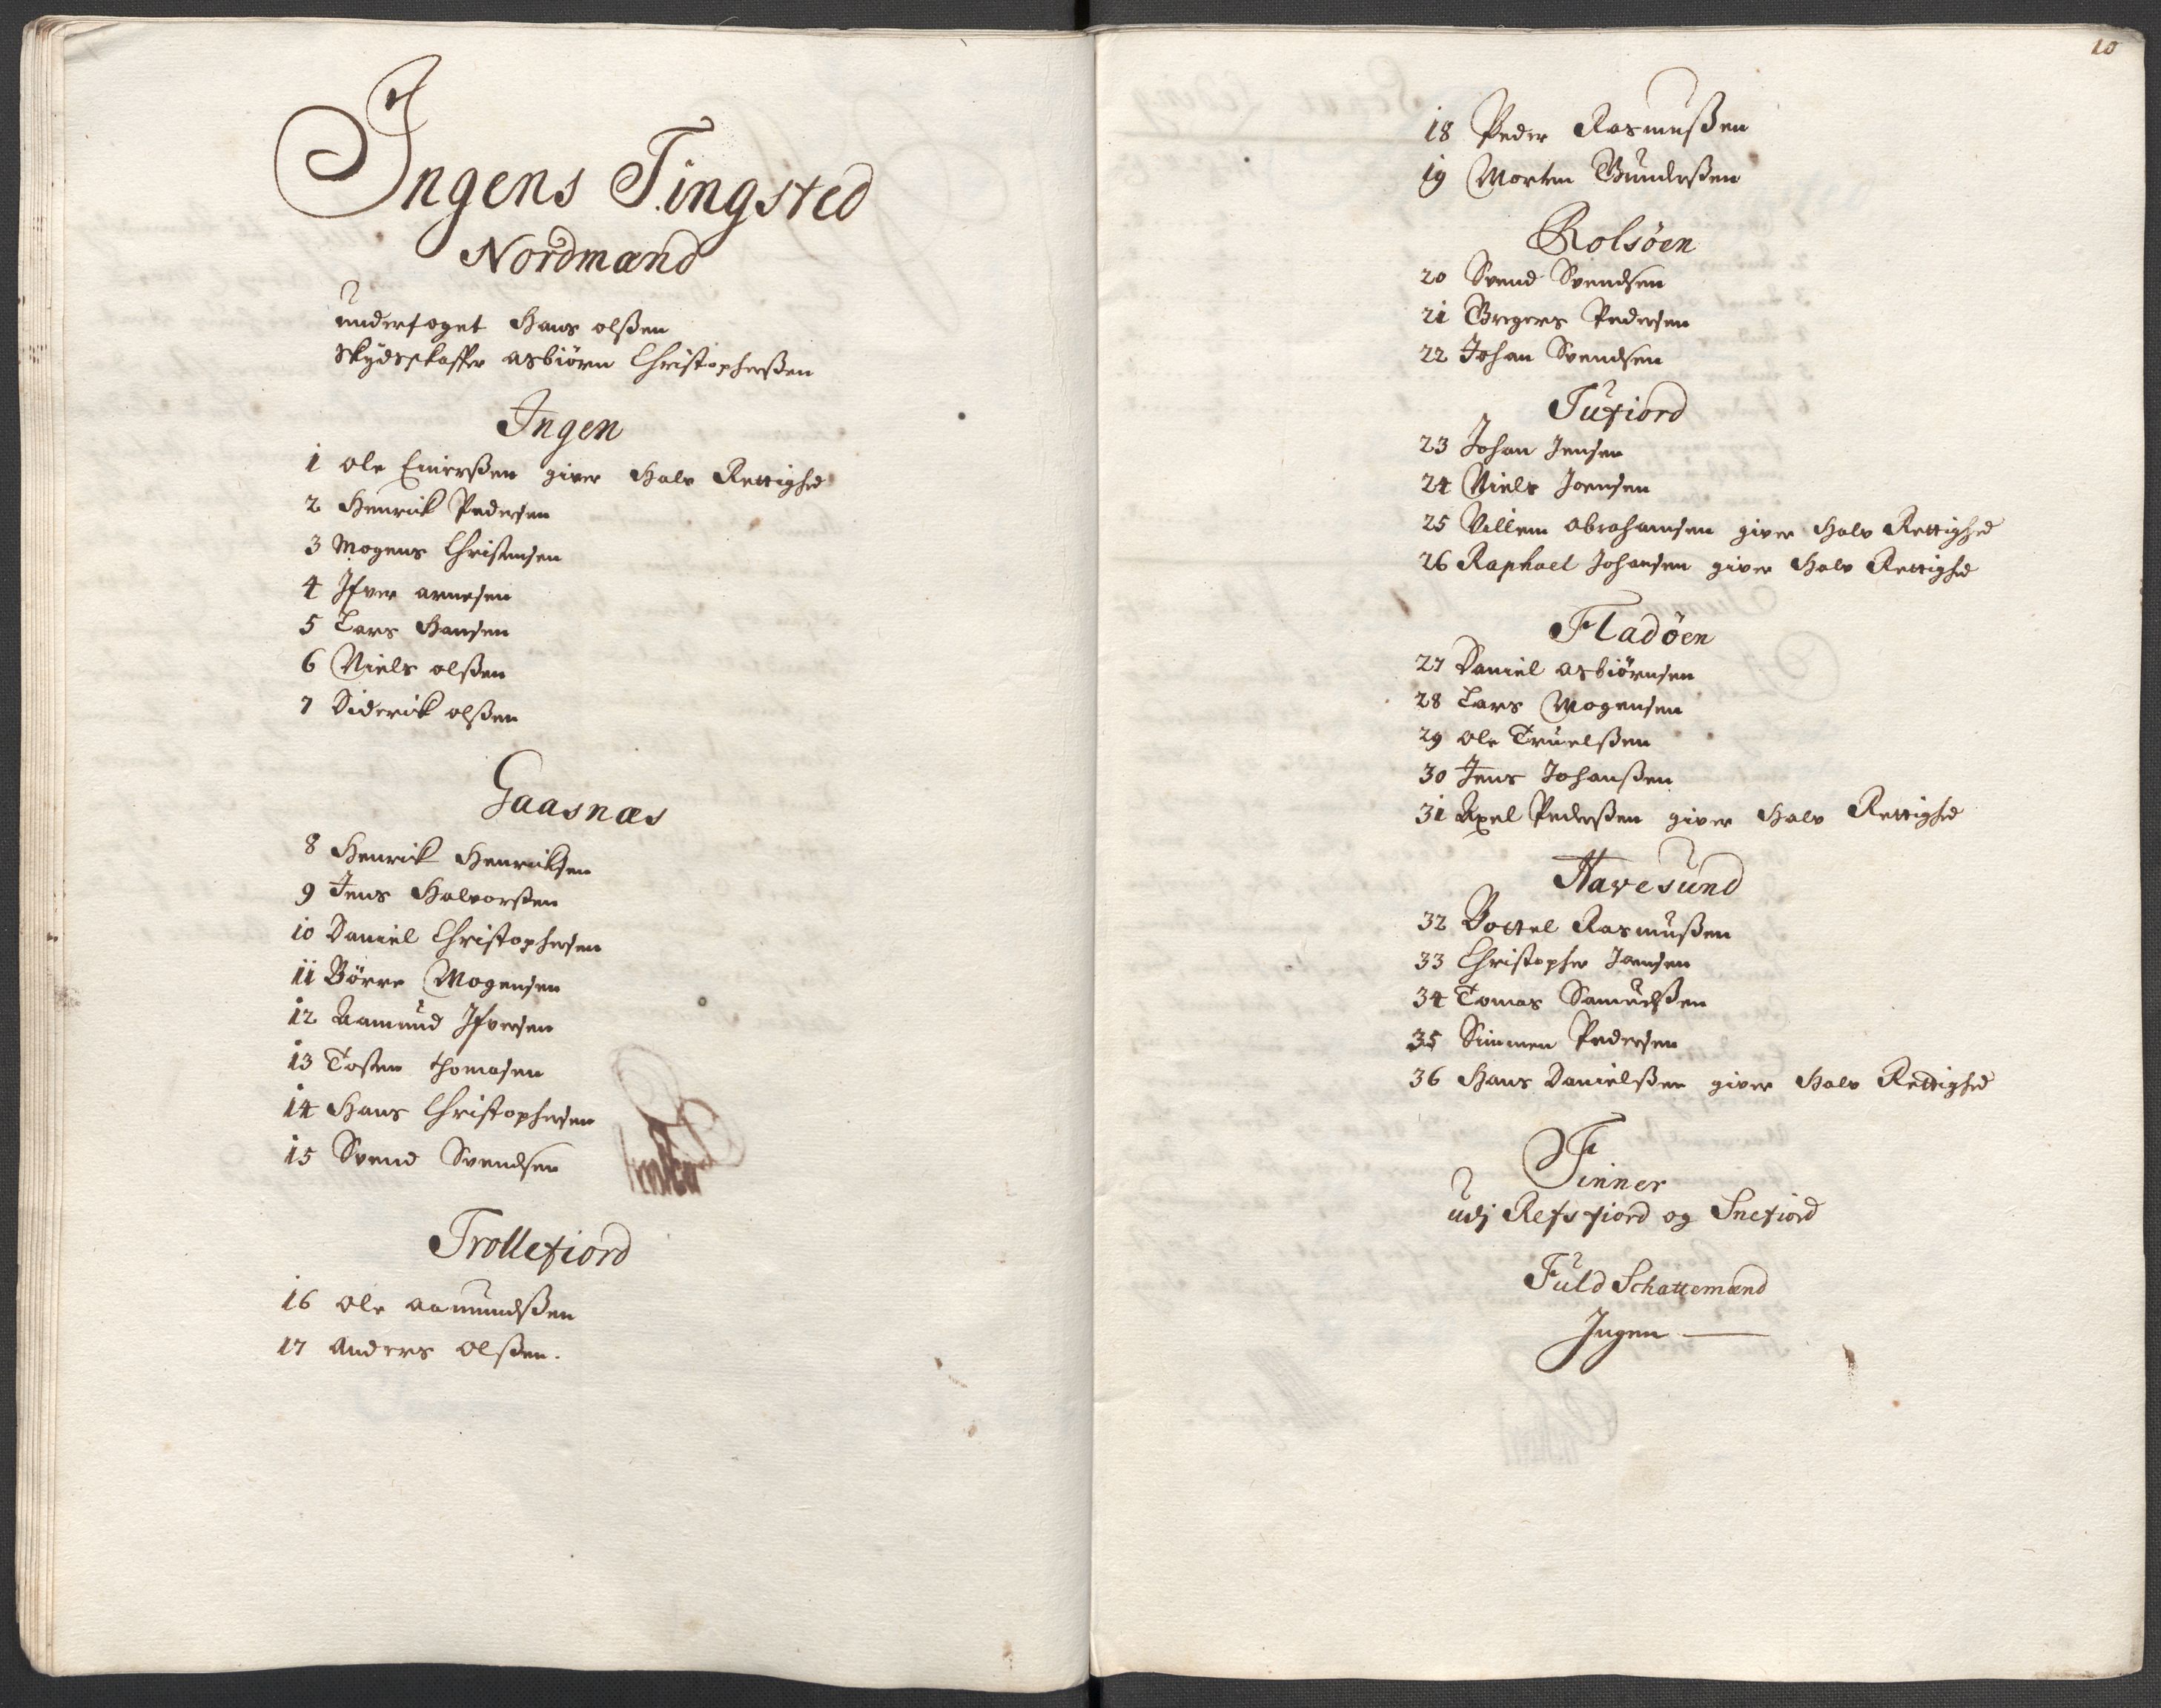 Ingens Tingsted
Nordmænd
underfoget Hans olßen
Skydsskaffer asbiørn Christopherßen
Ingen
1 Ole Einerßen giver Halv Rettighed
2 Henrick Pedersen
3 Mogens Christensen
4 Ifver arnesen
5 Lars Hansen
6 Niels olßen
7 Diderick olßen
Gaasnæs
8 Henrick Henricksen
9 Jens Halvorßen
10 Daniel Christophersen
11 Børre Mogensen
12 Aamund Ifversen
13 Tosten thomasen
14 Hans Christophersen
15 Svend Svendsen
Trollefiord
16 Ole aamundßen
17 Anders Olßen.
10
18 Peder Rasmußen
19 Morten Gunderßen
Rolsöen
20 Svend Svendsen
21 Gregers Pedersen
22 Johan Svendsen
Tufiord
23 Johan Jensen
24 Niels Joensen
25 Villem Abrahamsen giver Halv Rettighed
26 Raphael Johansen giver Halv Rettighed
Fladöen
27 Daniel asbiørnsen
28 Lars Mogensen
29 Ole Truelßen
30 Jens Johanßen
31 Axel Pederßen giver Halv Rettighed
Havesund
32 Bottel Rasmußen
33 Christopher Joensen
34 Tomas Samuelßen
35 Simmen Pedersen
36 Hans Danielßen giver Halv Rettighed
Finner
udj Refsfiord og Snefiord
Fuld Schattemænd
Ingen